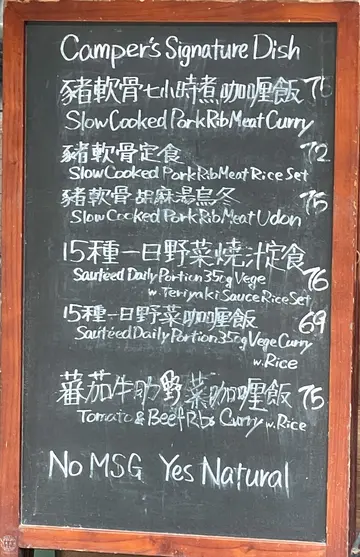 Camper's Signature Dish
豬軟骨七小時煮咖喱飯
Slow Cooked Pork Rib Meat Curry
豬軟骨定食 72
Slow Cooked Pork Rib Meat Rice Set
豬軟骨胡麻湯烏冬 75
Slow Cooked Pork Rib Meat Udon
15種一日野菜燒汁定食 76
Sautéed Daily Portion 350g Vege
w. Teriyaki Sauce Rice Set
15種一日野菜咖喱飯 69
Sautéed Daily Portion 350g Vege Curry
w. Rice
蕃茄牛肋野菜咖喱飯 75
Tomato & Beef Ribs Curry w. Rice
No MSG Yes Natural